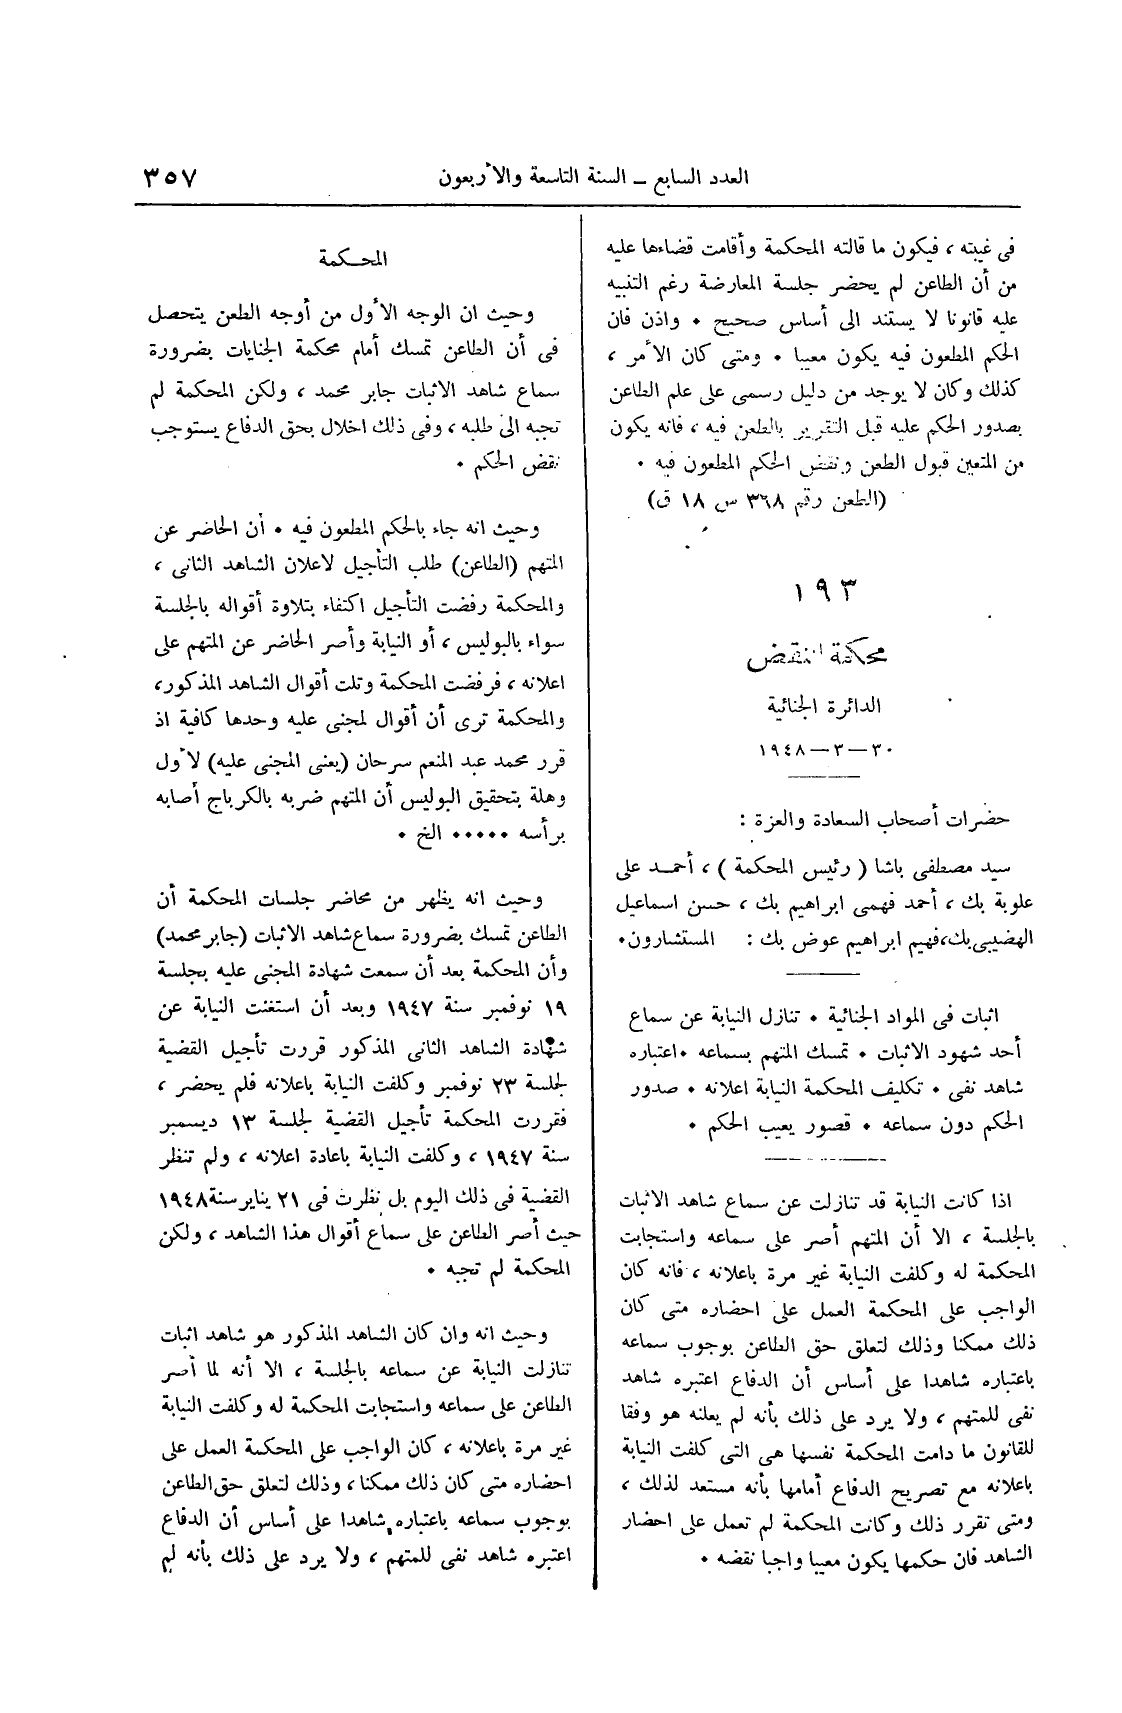 العدد السابع ــ السنة التاسعة والأربعون
٣٥٧
فى غيبته ، فيكون ما قالته المحكمة وأقامت قضاءها عليه
من أن الطاعن لم يحضر جلسة المعارضة رغم التنبيه
عليه قانونا لا يستند الى أساس صحيح ٠ واذن فان
الحكم المطعون فيه يكون معيبا ٠ ومتى كان الأمر ،
كذلك وكان لا يوجد من دليل رسمى على علم الطاعن
بصدور الحكم عليه قبل التقرير بالطعن فيه ، فانه يكون
من المتعين قبول الطعن ونقض الحكم المطعون فيه ٠
(الطعن رقم ٣٦٨ س ١٨ ق)
١٩٣
محكمة النقض
الدائرة الجنائية
٣٠ — ٣ — ١٩٤٨
حضرات أصحاب السعادة والعزة :
سيد مصطفى باشا ( رئيس المحكمة ) ، أحمد على
علوبة بك ، أحمد فهمى ابراهيم بك ، حسن اسماعيل
الهضيبى بك، فهيم ابراهيم عوض بك : المستشارون٠
اثبات فى المواد الجنائية ٠ تنازل النيابة عن سماع
أحد شهود الاثبات ٠ تمسك المتهم بسماعه ٠ اعتباره
شاهد نفى ٠ تكليف المحكمة النيابة اعلانه ٠ صدور
الحكم دون سماعه ٠ قصور يعيب الحكم ٠
اذا كانت النيابة قد تنازلت عن سماع شاهد الاثبات
بالجلسة ، الا أن المتهم أصر على سماعه واستجابت
المحكمة له وكلفت النيابة غير مرة باعلانه ، فانه كان
الواجب على المحكمة العمل على احضاره متى كان
ذلك ممكنا وذلك لتعلق حق الطاعن بوجوب سماعه
باعتباره شاهدا على أساس أن الدفاع اعتبره شاهد
نفى للمتهم ، ولا يرد على ذلك بأنه لم يعلنه هو وفقا
للقانون ما دامت المحكمة نفسها هى التى كلفت النيابة
باعلانه مع تصريح الدفاع أمامها بأنه مستعد لذلك ،
ومتى تقرر ذلك وكانت المحكمة لم تعمل على احضار
الشاهد فان حكمها يكون معيبا واجبا نقضه ٠
المحكمة
وحيث ان الوجه الأول من أوجه الطعن يتحصل
فى أن الطاعن تمسك أمام محكمة الجنايات بضرورة
سماع شاهد الاثبات جابر محمد ، ولكن المحكمة لم
تجبه الى طلبه ، وفى ذلك اخلال بحق الدفاع يستوجب
نقض الحكم ٠
وحيث انه جاء بالحكم المطعون فيه ٠ أن الحاضر عن
المتهم (الطاعن) طلب التأجيل لاعلان الشاهد الثانى ،
والمحكمة رفضت التأجيل اكتفاء بتلاوة أقواله بالجلسة
سواء بالبوليس ، أو النيابة وأصر الحاضر عن المتهم على
اعلانه ، فرفضت المحكمة وتلت أقوال الشاهد المذكور،
والمحكمة ترى أن أقوال لمجنى عليه وحدها كافية اذ
قرر محمد عبد المنعم سرحان (يعنى المجنى عليه) لأول
وهلة بتحقيق البوليس أن المتهم ضربه بالكرباج أصابه
برأسه ٠٠٠٠٠ الخ ٠
وحيث انه يظهر من محاضر جلسات المحكمة أن
الطاعن تمسك بضرورة سماع شاهد الاثبات (جابر محمد)
وأن المحكمة بعد أن سمعت شهادة المجنى عليه بجلسة
١٩ نوفمبر سنة ١٩٤٧ وبعد أن استغنت النيابة عن
شهادة الشاهد الثانى المذكور قررت تأجيل القضية
لجلسة ٢٣ نوفمبر وكلفت النيابة باعلانه فلم يحضر ،
فقررت المحكمة تأجيل القضية لجلسة ١٣ ديسمبر
سنة ١٩٤٧ ، وكلفت النيابة باعادة اعلانه ، ولم تنظر
القضية فى ذلك اليوم بل نظرت فى ٢١ يناير سنة ١٩٤٨
حيث أصر الطاعن على سماع أقوال هذا الشاهد ، ولكن
المحكمة لم تجبه ٠
وحيث انه وان كان الشاهد المذكور هو شاهد اثبات
تنازلت النيابة عن سماعه بالجلسة ، الا أنه لما أصر
الطاعن على سماعه واستجابت المحكمة له وكلفت النيابة
غير مرة باعلانه ، كان الواجب على المحكمة العمل على
احضاره متى كان ذلك ممكنا ، وذلك لتعلق حق الطاعن
بوجوب سماعه باعتباره شاهدا على أساس أن الدفاع
اعتبره شاهد نفى للمتهم ، ولا يرد على ذلك بأنه لم